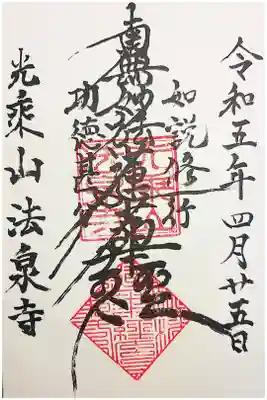 令和五年四月廿五日
如説修行
南無妙法蓮華経
功徳甚多
光乘山法泉寺